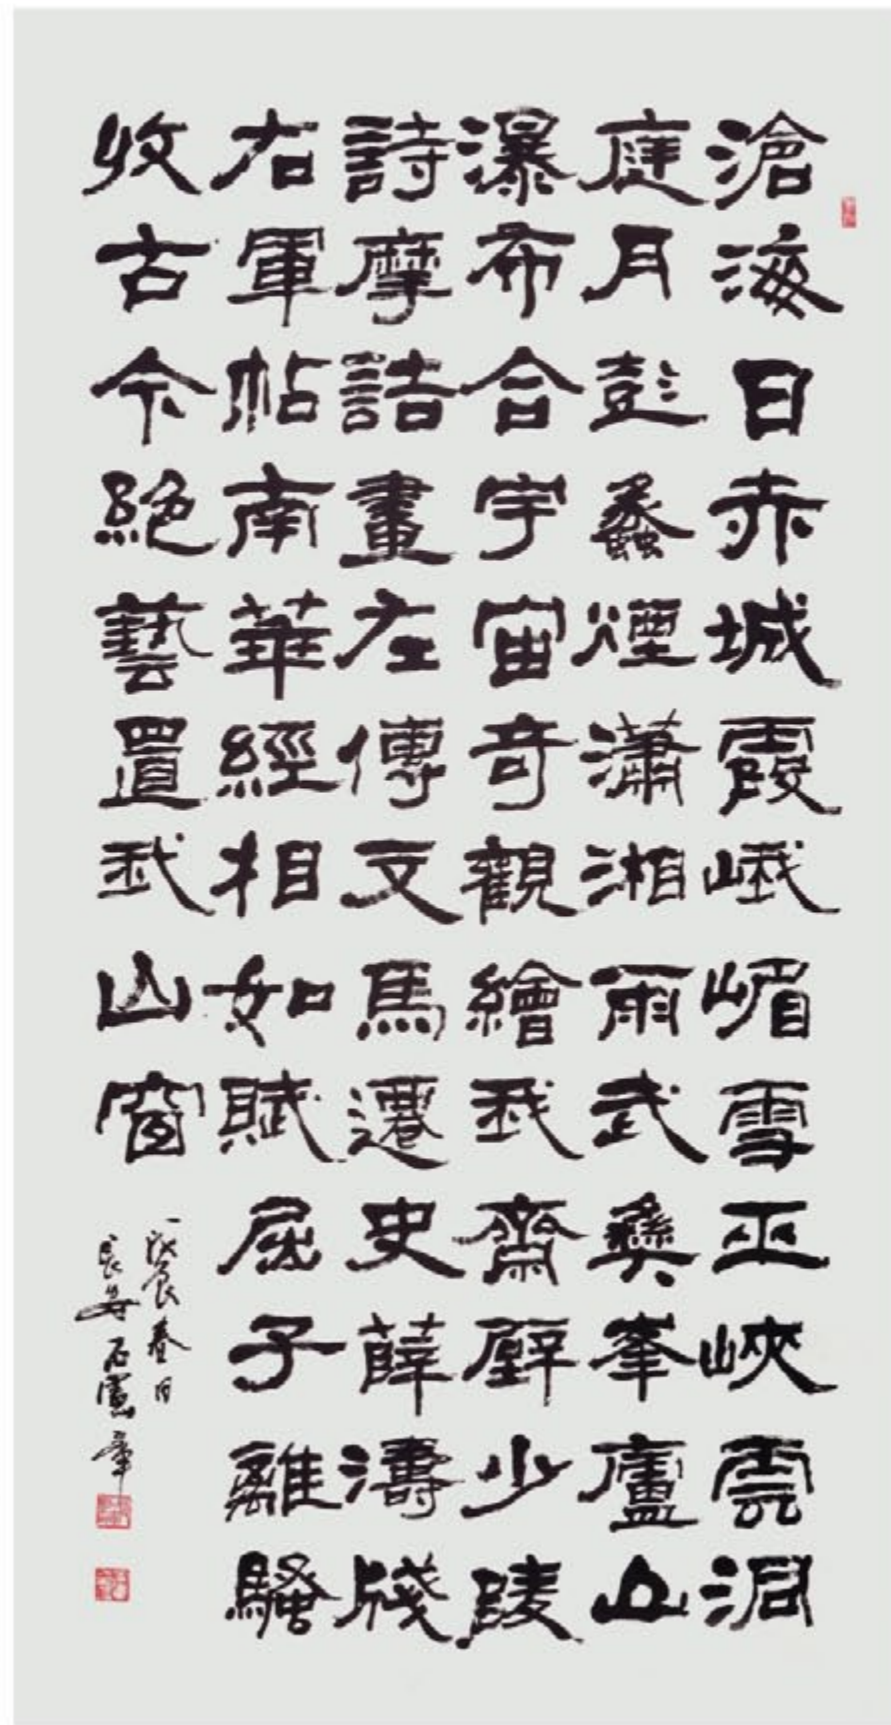 滄海日赤城霞峨嵋雪巫峽雲洞
庭月彭蠡煙瀟湘雨武彝峯廬山
瀑布合宇宙奇觀繪我齋壁少陵
詩摩詰畫左傳文馬遷史薛濤牋
右軍帖南華經相如賦屈子離騷
收古今絕藝置我山窗
戊辰春日
長安石憲章